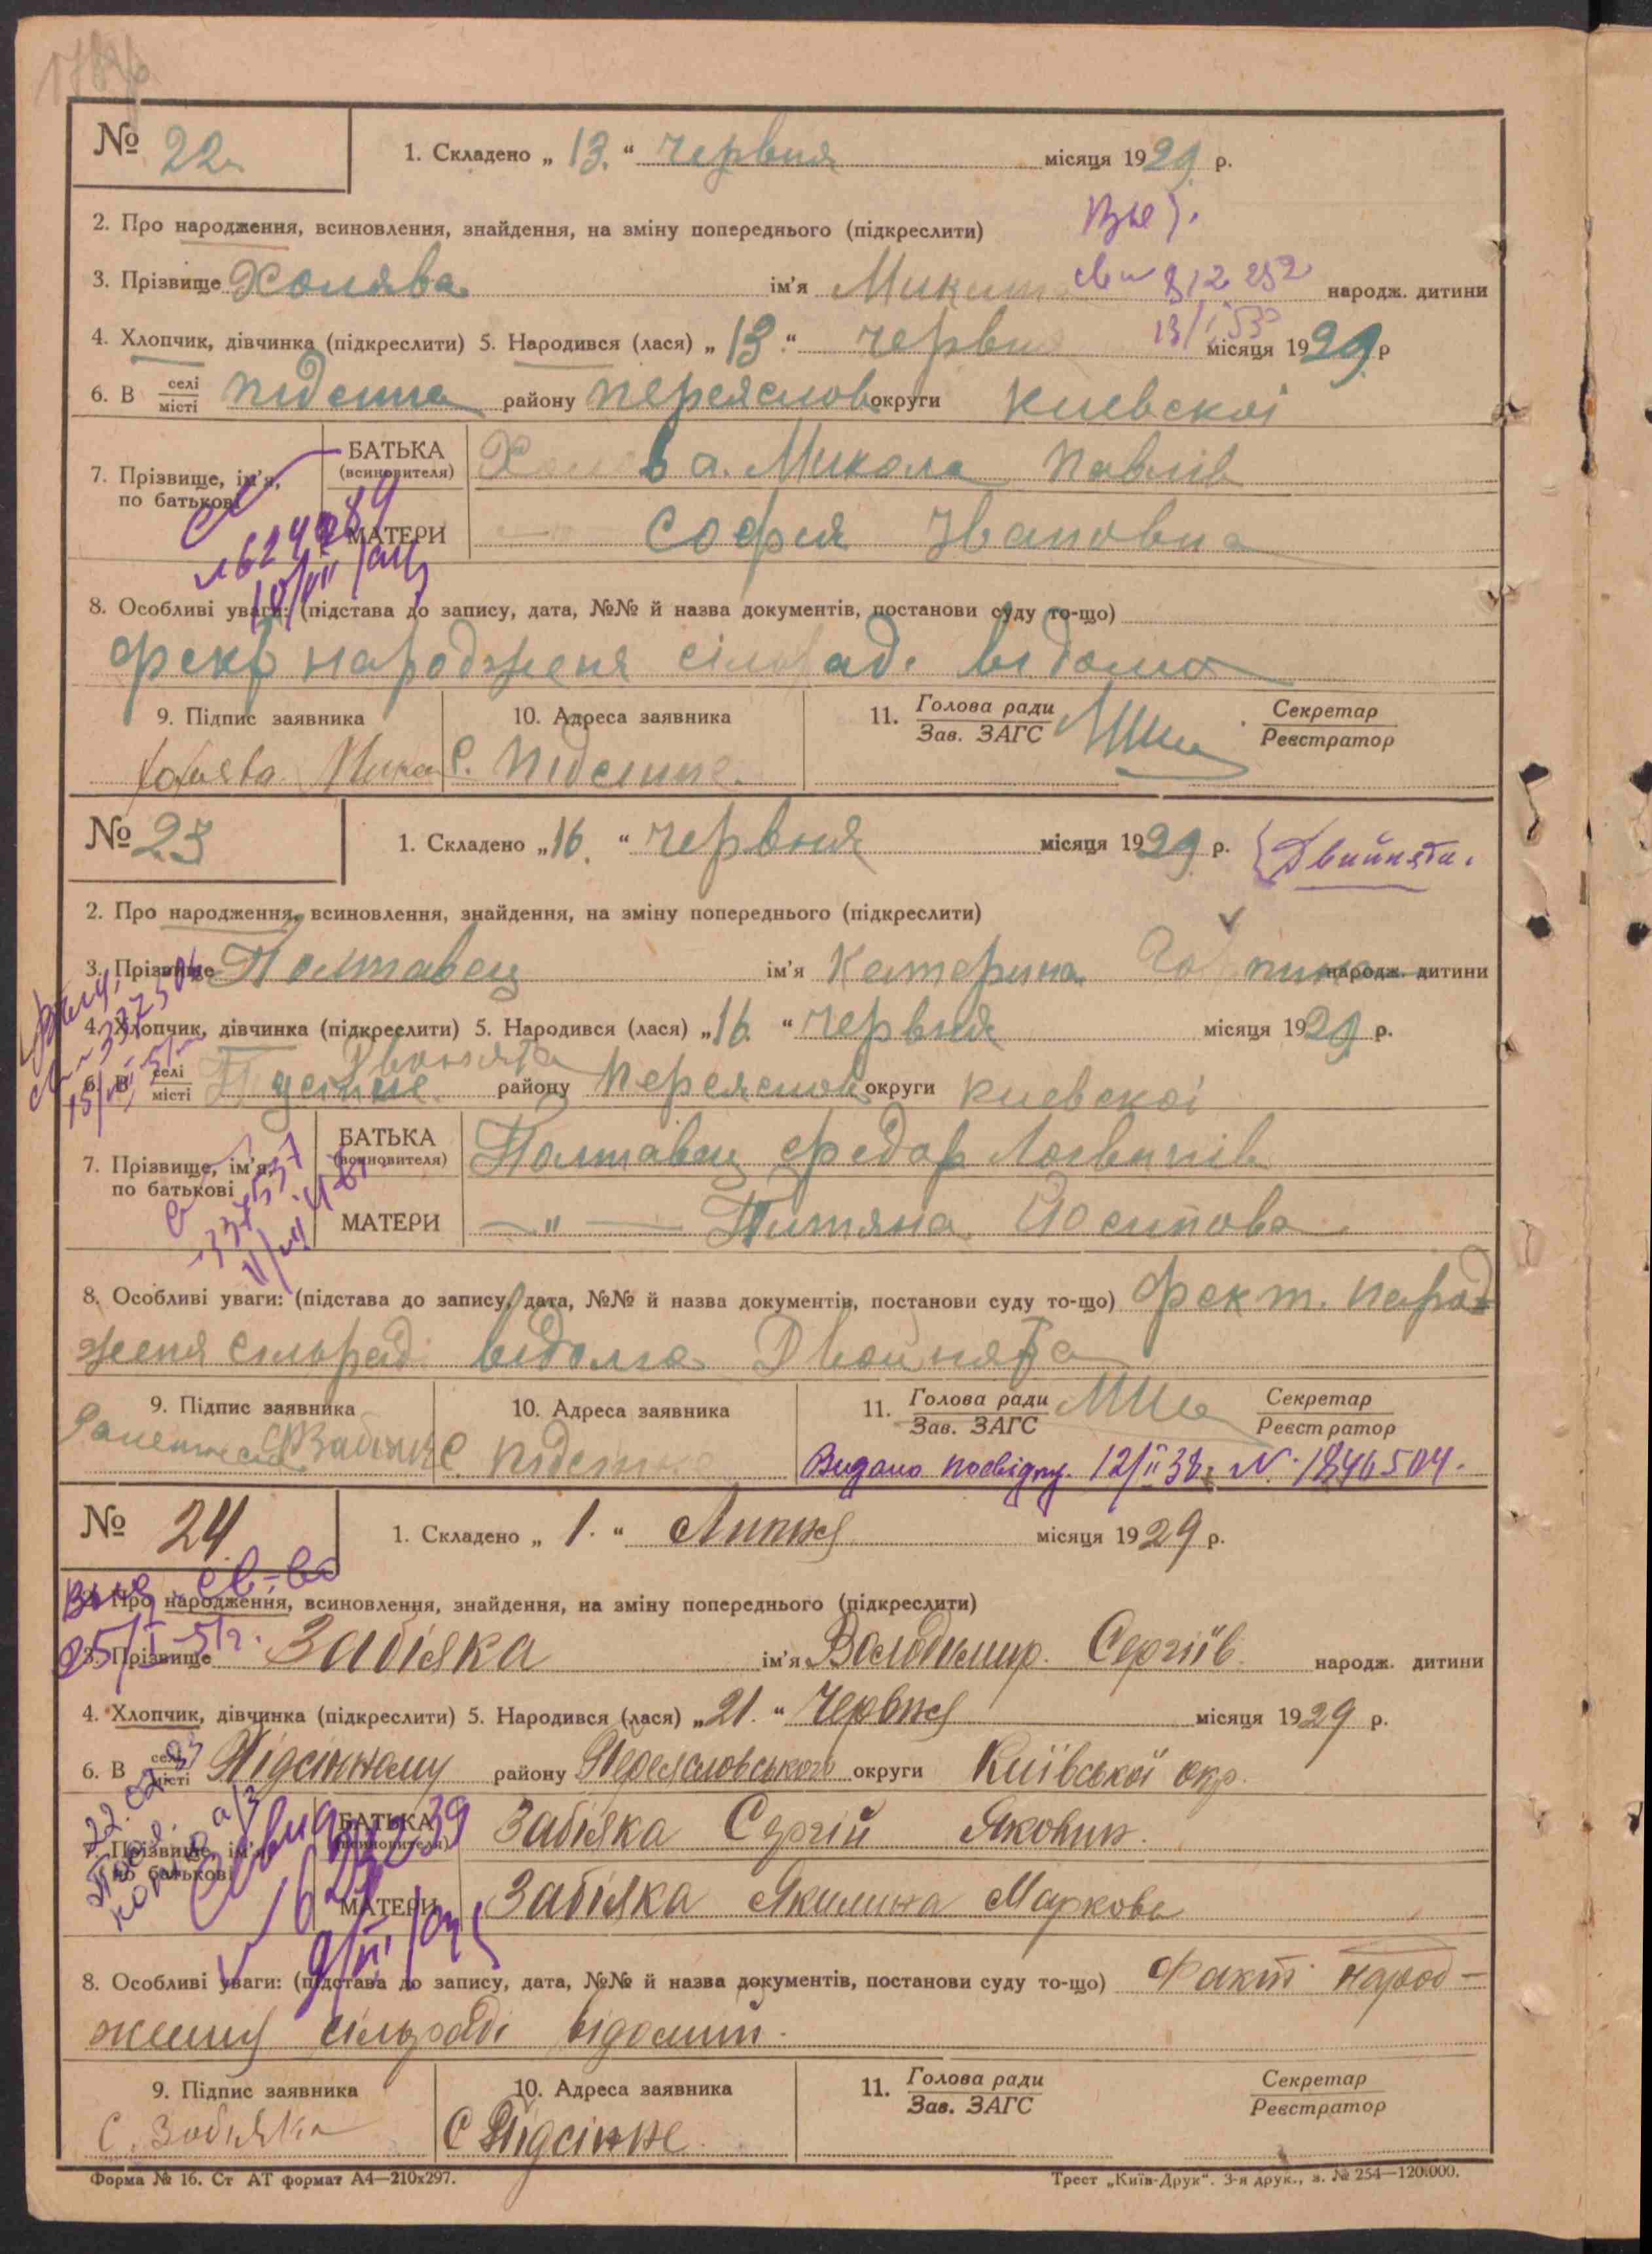 № 22
1. Складено „ 13. “ червня місяця 1929 р.
2. Про народження, всиновлення, знайдення, на зміну попереднього (підкреслити)
3. Прізвище Холява ім'я Микита народж. дитини
4. Хлопчик, дівчинка (підкреслити) 5. Народився (лася) „ 13. “ червня місяця 1929 р
13/I 53
6. В селі місті району Переяслов округи Киевскоі
7. Прізвище, ім'я, по батькові
БАТЬКА (всиновителя) Холява Микола Павлів
МАТЕРИ — София Ивановна
8. Особливі уваги: (підстава до запису, дата, №№ й назва документів, постанови суду то-що)
народженя сільрад. відома
9. Підпис заявника 10. Адреса заявника 11. Голова ради Зав. ЗАГС Секретар Реєстратор
Холява с.
№ 23
1. Складено „ 16. “ червня місяця 1929 р. Двійнята.
2. Про народження, всиновлення, знайдення, на зміну попереднього (підкреслити)
3. Прізвище Полтавец ім'я Катерина народж. дитини
4. Хлопчик, дівчинка (підкреслити) 5. Народився (лася) „ 16. “ червня місяця 1929 р.
6. В селі місті району Переяслов округи Киевскоі
7. Прізвище, ім'я, по батькові
БАТЬКА (всиновителя) Полтавец Федор Логвинів
МАТЕРИ — „ — Титяна Йосипова
8. Особливі уваги: (підстава до запису, дата, №№ й назва документів, постанови суду то-що) Фект. народ
женя сільрад. відома Двойнята
9. Підпис заявника 10. Адреса заявника 11. Голова ради Зав. ЗАГС Секретар Реєстратор
Видано посвідку. 12/II 38. N. 1846504.
№ 24
1. Складено „ 1. “ Липня місяця 1929 р.
2. Про народження, всиновлення, знайдення, на зміну попереднього (підкреслити)
25/I-51г.
3. Прізвище Забіяка ім'я Володимир. Сергіїв. народж. дитини
4. Хлопчик, дівчинка (підкреслити) 5. Народився (лася) „ 21. “ Червня місяця 1929 р.
6. В селі місті Підсінному району Переясловського округи Київської окр.
7. Прізвище, ім'я, по батькові
БАТЬКА (всиновителя) Забіяка Сергій Якович.
МАТЕРИ Забіяка Якилина Маркова
8. Особливі уваги: (підстава до запису, дата, №№ й назва документів, постанови суду то-що) Факт народ-
ження сільраді відомий.
9. Підпис заявника 10. Адреса заявника 11. Голова ради Зав. ЗАГС Секретар Реєстратор
С. Забіяка С Підсінне.
Форма № 16. Ст АТ формат А4—210х297. Трест „Київ-Друк“. 3-я друк., з. № 254—120.000.